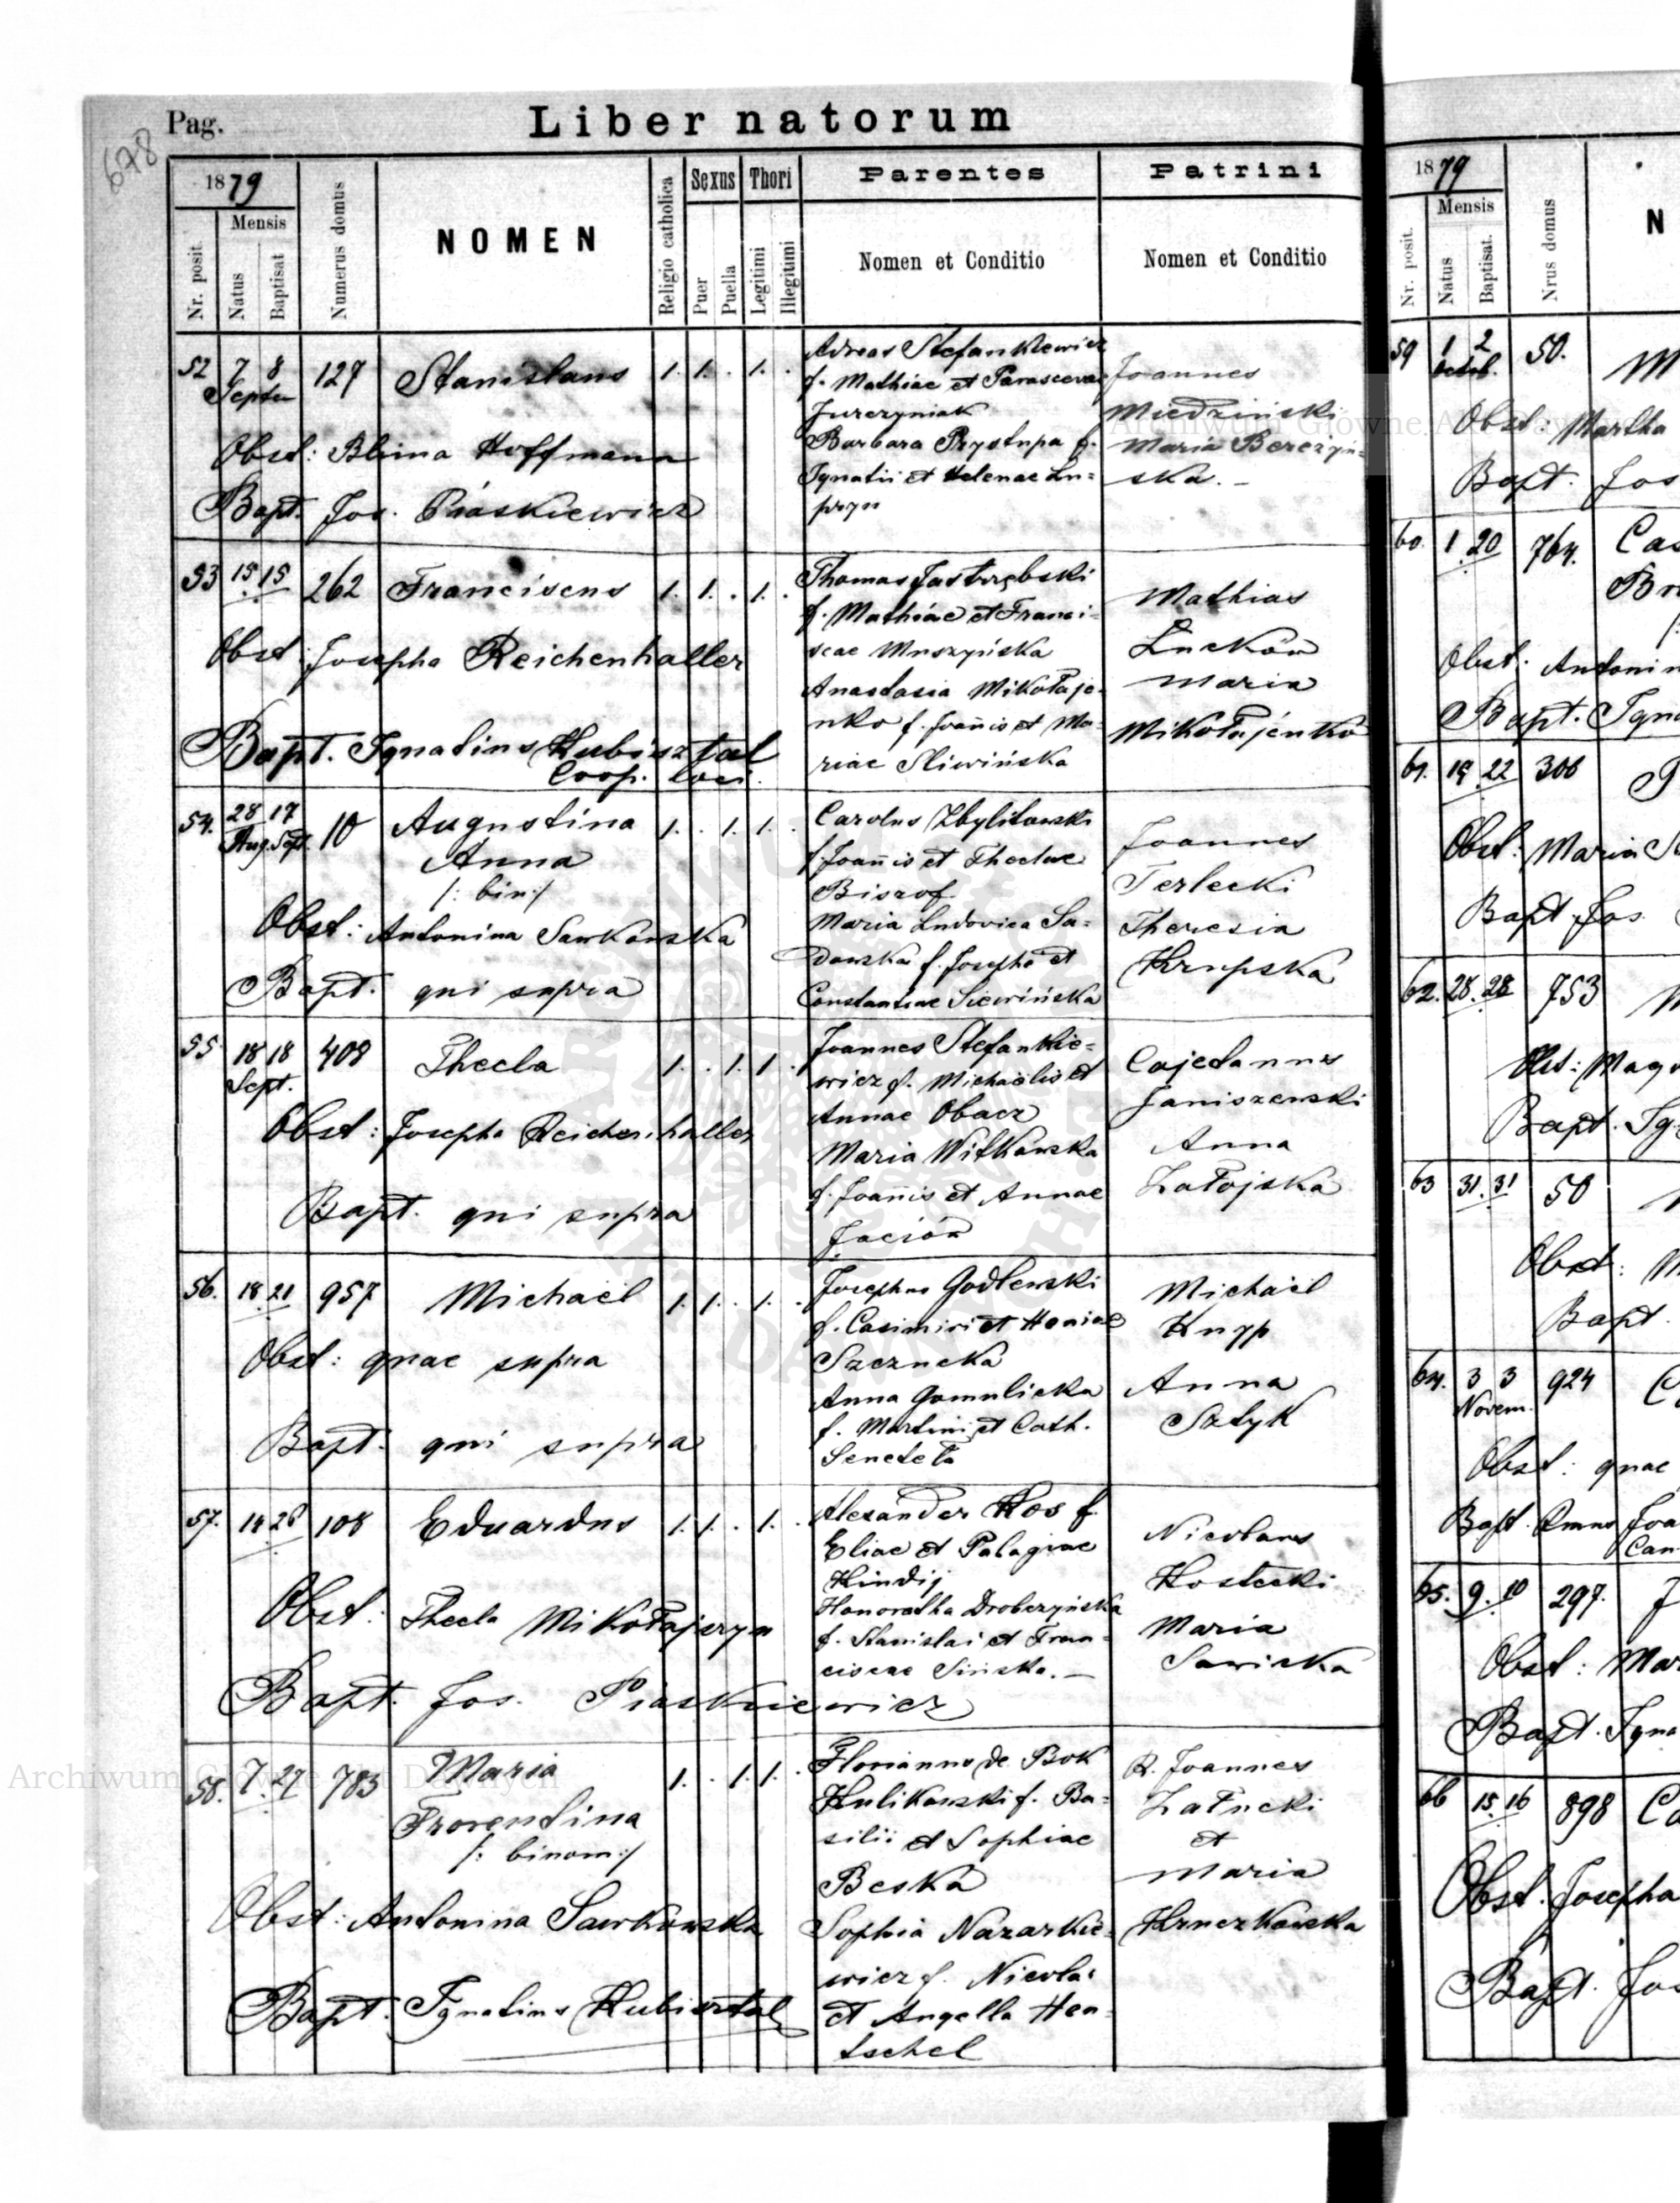 678
Pag.
Liber natorum
1879
Nr. posit.
Mensis
Natus
Baptisat
Numerus domus
NOMEN
Religio catholica
Sexus
Puer
Puella
Thori
Legitimi
Illegitimi
Parentes
Nomen et Conditio
Patrini
Nomen et Conditio
52 7 8 127 Stanislaus 1. 1. . 1. .
Septem
Obst: Blima Hoffmann
Bapt. Jos. Piaskiewicz
Adreas Stefankiewicz
f. Mathiae et Parascevae
Jurczyniak
Barbara Prystupa f.
Ignatii et Helenae Lu=
pryn
Joannes
Miedziński
Maria Bereżyń=
ska. –
53 15 15 262 Franciscus 1. 1. . 1. .
Obst: Josepha Reichenhaller
Bapt. Ignatius Kubisztal
Coop. loci.
Thomas Jastrzębski
f. Mathiae et Franci=
scae Muszyńska
Anastasia Mikołaje=
nko f. Joannis et Ma=
riae Sliwińska
Mathias
Łucków
Maria
Mikołajenko
54. 28 17 10 Augustina 1. . 1. 1. .
Aug. Sept. Anna
/: bin:/
Obst: Antonina Sawkowska
Bapt. qui supra
Carolus Zbylitowski
f. Joannis et Theclae
Biszof
Maria Ludovica Sa=
dowska f. Josephi et
Constantiae Siewińska
Joannes
Terlecki
Theresia
Krupska
55 18 18 408 Thecla 1. . 1. 1. .
Sept.
Obst: Josepha Reichenhaller
Bapt. qui supra
Joannes Stefankie=
wicz f. Michaëlis et
Annae Obacz
Maria Witkowska
f. Joannis et Annae
Jaciów
Cajetannus
Janiszewski
Anna
Załojska
56. 18 21 957 Michaël 1. 1. . 1. .
Obst: quae supra
Bapt. qui supra
Josephus Godlewski
f. Casimiri et
Szczucka
Anna Gomulicka
f. Martini et Cath.
Seneteła
Michaël
Kupp
Anna
Sztyk
57. 14 26 108 Eduardus 1. 1. . 1. .
Obst: Thecla Mikołajczyn
Bapt. Jos. Piaskiewicz
Alexander Kos f.
Eliae et Palagiae
Kindij
Honoratha Drobczyńska
f. Stanislai et Fran=
ciscae Sińska. –
Nicolaus
Kostecki
Maria
Sawicka
58. 7 27 783 Maria 1. . 1. 1. .
Frorentina
/: binom:/
Obst: Antonina Sawkowska
Bapt. Ignatius Kubisztal
Florianus de Bok
Kulikowski f. Ba=
silii et Sophiae
Beska
Sophia Nazarkie=
wicz f. Nicolai
et Angella Hen=
tschel
R. Joannes
Załucki
et
Maria
Kruczkowska
1879
Nr. posit.
Mensis
Natus
Baptisat.
Nrus domus
N
59 1 2 50. M
Octob.
Obst: Martha
Bapt. Jos
60. 1 20 764. Cas
Br
Obst: Antonin
Bapt. Igna
61. 19 22 306
Obst: Maria S
Bapt. Jos.
62. 28 28 753
Obst: Mag
Bapt. Ig
63 31 31 50
Obst: M
Bapt.
64. 3 3 924 C
Novem.
Obst: quae
Bapt. Joa
Can
65. 9 10 297. J
Obst: Mar
Bapt. Igna
66 15 16 898 Ca
Obst. Josepha
Bapt. Jos
Archiwum Główne Akt Dawnych
Archiwum Główne Akt Dawnych